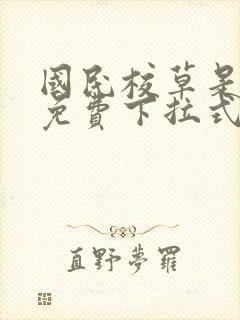 國民校草是
免費下拉式
直野夢羅